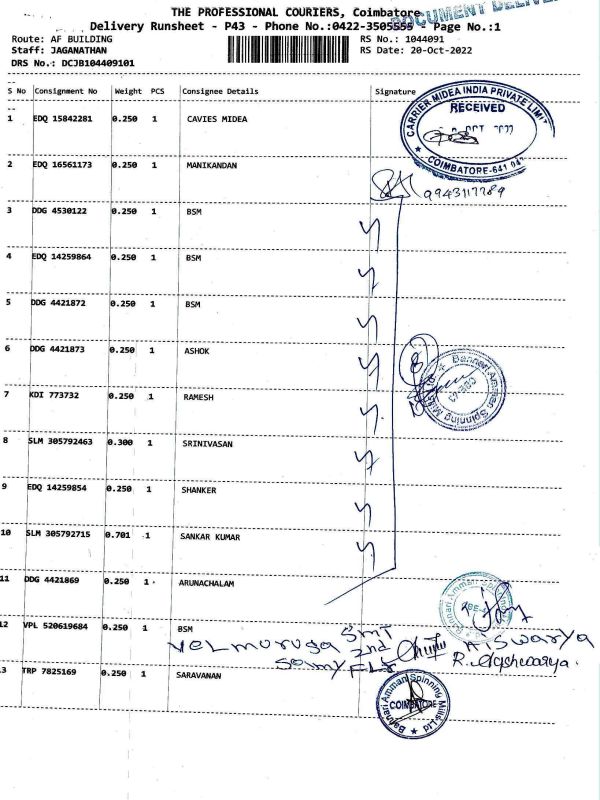 THE PROFESSIONAL COURIERS, Coimbatore
DOCUMENT
Delivery Runsheet - P43 - Phone No.:0422-3505555 Page No.:1
Route: AF BUILDING
RS No.: 1044091
Staff: JAGANATHAN
RS Date: 20-Oct-2022
DRS No.: DCJB104409101
S No Consignment No Weight PCS Consignee Details Signature
CARRIER MIDEA INDIA PRIVATE LIMIT
RECEIVED
★ COIMBATORE-641
1 EDQ 15842281 0.250 1 CAVIES MIDEA
2 EDQ 16561173 0.250 1 MANIKANDAN
9943117789
3 DDG 4530122 0.250 1 BSM
4 EDQ 14259864 0.250 1 BSM
5 DDG 4421872 0.250 1 BSM
6 DDG 4421873 0.250 1 ASHOK
Bannari Amman Spinning Mills Ltd
7 KDI 773732 0.250 1 RAMESH
8 SLM 305792463 0.300 1 SRINIVASAN
9 EDQ 14259854 0.250 1 SHANKER
10 SLM 305792715 0.701 1 SANKAR KUMAR
11 DDG 4421869 0.250 1 ARUNACHALAM
12 VPL 520619684 0.250 1 BSM
Velmuruga SMT AISWARYA
Samy 2nd FLR R.
3 TRP 7825169 0.250 1 SARAVANAN
Bannari Amman Spinning Mills Ltd
COIMBATORE
★